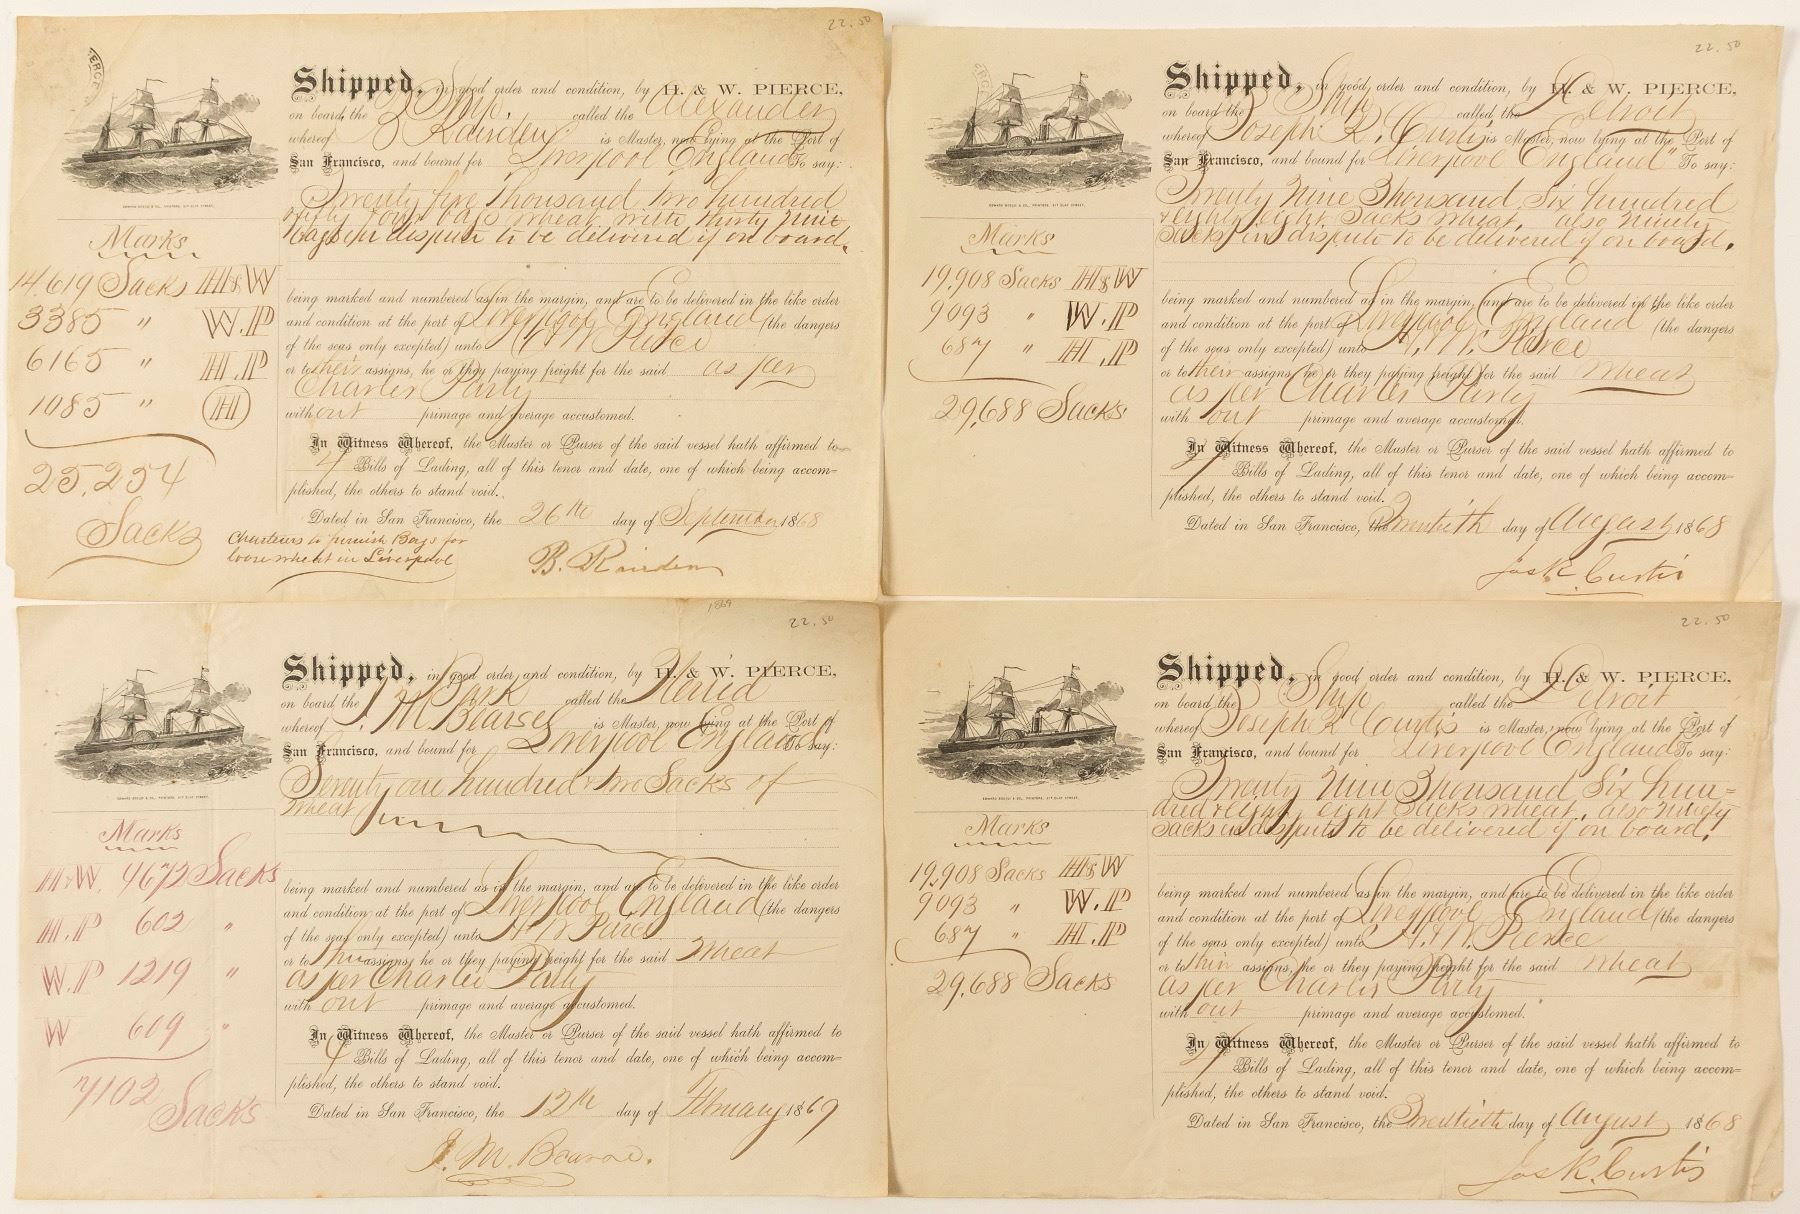 22.50
Shipped, in good order and condition, by H. & W. PIERCE,
on board the Ship. called the Alexander
whereof B Rairden is Master, now lying at the Port of
San Francisco, and bound for Liverpool England To say:
Twenty five Thousand two hundred
& fifty four bags wheat with thirty nine
bags in dispute to be delivered if on board.
Marks
14.619 Sacks H&W
3385 " W.P
6165 " H.P
1085 " H
25.254
Sacks
being marked and numbered as in the margin, and are to be delivered in the like order
and condition at the port of Liverpool England (the dangers
of the seas only excepted) unto H & W Pierce
or to their assigns, he or they paying freight for the said as per
Charter Party
with out primage and average accustomed.
In Witness Whereof, the Master or Purser of the said vessel hath affirmed to
4 Bills of Lading, all of this tenor and date, one of which being accom-
plished, the others to stand void.
Dated in San Francisco, the 26th day of September 1868
Charterers to furnish Bags for
loose wheat in Liverpool
B. Rairden
22.50
Shipped, in good order and condition, by H. & W. PIERCE,
on board the Ship called the Detroit
whereof Joseph R. Curtis is Master, now lying at the Port of
San Francisco, and bound for Liverpool England" To say:
Twenty Nine Thousand Six hundred
& eighty eight Sacks wheat, also ninety
Sacks in dispute to be delivered if on board.
Marks
19,908 Sacks H&W
9093 " W.P
687 " H.P
29,688 Sacks
being marked and numbered as in the margin, and are to be delivered in the like order
and condition at the port of Liverpool England (the dangers
of the seas only excepted) unto H. & W. Pierce
or to their assigns, he or they paying freight for the said wheat
as per Charter Party
with out primage and average accustomed.
In Witness Whereof, the Master or Purser of the said vessel hath affirmed to
Bills of Lading, all of this tenor and date, one of which being accom-
plished, the others to stand void.
Dated in San Francisco, the Twentieth day of August 1868
Jos R. Curtis
1869
22.50
Shipped, in good order and condition, by H. & W. PIERCE,
on board the Bark called the
whereof J. M. is Master, now lying at the Port of
San Francisco, and bound for Liverpool England To say:
Seventy one hundred & two Sacks of
wheat
Marks
H&W. 4672 Sacks
H.P 602 "
W.P 1219 "
W 609 "
7102
Sacks
being marked and numbered as in the margin, and are to be delivered in the like order
and condition at the port of Liverpool England (the dangers
of the seas only excepted) unto H & W Pierce
or to assigns, he or they paying freight for the said Wheat
as per Charter Party
with out primage and average accustomed.
In Witness Whereof, the Master or Purser of the said vessel hath affirmed to
4 Bills of Lading, all of this tenor and date, one of which being accom-
plished, the others to stand void.
Dated in San Francisco, the 12th day of February 1869
J. M.
22.50
Shipped, in good order and condition, by H. & W. PIERCE,
on board the Ship called the Detroit
whereof Joseph R Curtis is Master, now lying at the Port of
San Francisco, and bound for Liverpool England To say:
Twenty Nine Thousand Six hun=
dred & eighty eight Sacks wheat, also ninety
Sacks in dispute to be delivered if on board.
Marks
19,908 Sacks H&W
9093 " W.P
687 " H.P
29,688 Sacks
being marked and numbered as in the margin, and are to be delivered in the like order
and condition at the port of Liverpool England (the dangers
of the seas only excepted) unto H. & W. Pierce
or to their assigns, he or they paying freight for the said wheat
as per Charter Party
with out primage and average accustomed.
In Witness Whereof, the Master or Purser of the said vessel hath affirmed to
Bills of Lading, all of this tenor and date, one of which being accom-
plished, the others to stand void.
Dated in San Francisco, the Twentieth day of August 1868
Jos R. Curtis